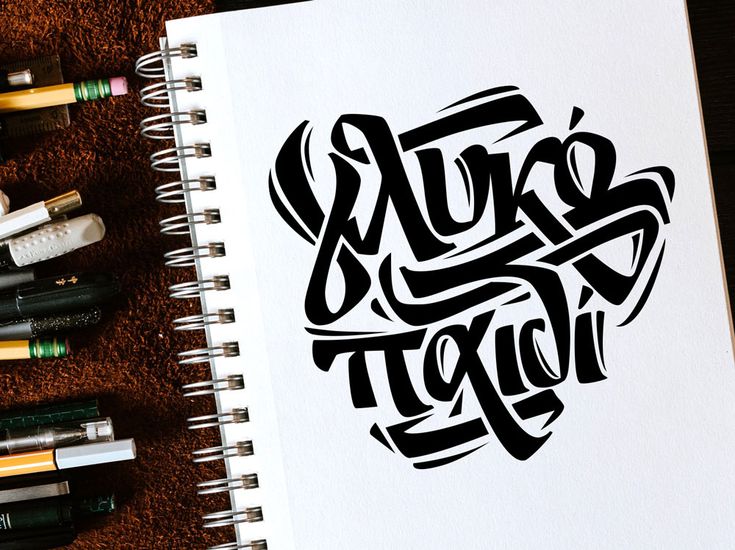 γλυκό
παιδί